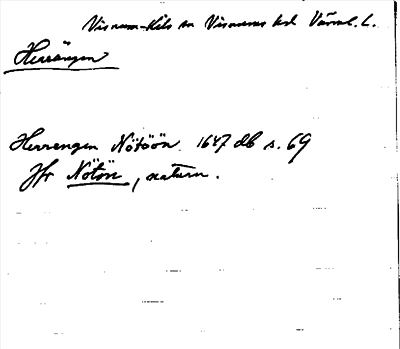 Visnum-Kils sn Visnums hd Värml. l.
Herrängen
Herrengen Nötöön 1647 db s. 69
Jfr Nötön, naturn.